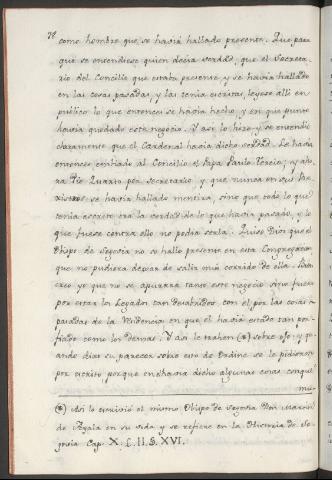 78
como hombre que se havia hallado presente. Que para
que se entendiese quien decia verdad, que el Secreta-
rio del Concilio que estaba presente, y se havia hallado
en las cosas pasadas, y las tenia escritas, leyese alli en
publico lo que entonces se havia hecho, y en que punto
havia quedado este negocio. Y asi lo hizo y se entendió
claramente que el Cardenal havia dicho verdad. Le havia
entonces enviado al Concilio el Papa Paulo Tercio; y aho-
ra Pio Quarto por Secretario y que nunca en sus Re-
xistros se havia hallado mentira, sino que todo lo que
tenia escrito era la verdad de lo que havia pasado, y lo
que fuese contra ello no podia serla. Quiso Dios que el
Obispo de Segovia no se halló presente en esta Congregacion
que no pudiera dexar de salir mui corrido de ella.
creo yo que no se apurára tanto este negocio sino fuera
por estar los Legados tan desabridos con el por las cosas
pasadas de la Residencia en que el havia estado tan por-
fiado como los demas. Y asi le trahen (*) sobre ojo, y qu-
ando dias su parecer sobre esto de Ordine se le pidieron
por escrito porque en havia dicho algunas cosas con que
mu-
(*) Asi lo escrivió el mismo Obispo de Segovia Don Martin
de Ayala en su vida y se refiere en la Historia de Se-
govia Cap. X. §. II. §. XVI.